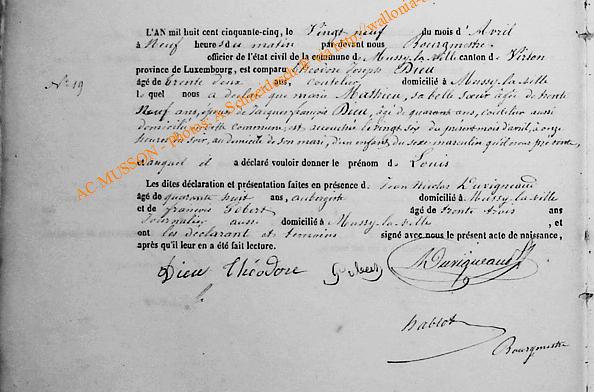 L'AN mil huit cent cinquante-cinq, le Vingt neuf du mois d'Avril
à Neuf heures du matin par devant nous Bourgmestre
officier de l'état civil de la commune de Mussy-la-ville canton de Virton
province de Luxembourg, est comparu Théodore Joseph Dieu
N° 19
âgé de trente deux ans, Coutelier domicilié à Mussy-la-ville
le quel nous a déclaré que marie Mathieu, sa belle sœur âgée de trente
Neuf ans, épouse de Jacques françois Dieu, âgé de quarante ans, coutelier aussi
domicilié en cette commune, est accouchée le vingt six du présent mois d'avril, à onze
heures du soir, au domicile de son mari, d'un enfant du sexe masculin qu'il nous présente,
et auquel il a déclaré vouloir donner le prénom de Louis
Les dites déclaration et présentation faites en présence de Jean Nicolas Duvigneaud
âgé de quarante huit ans, aubergiste domicilié à Mussy-la-ville
et de françois Gobert âgé de trente trois ans
Journalier aussi domicilié à Mussy-la-ville, et
ont les déclarant et témoins signé avec nous le présent acte de naissance,
après qu'il leur en a été fait lecture.
Dieu Théodore Duvigneaud
Bourgmestre
AC MUSSON - photos: A. Schmer